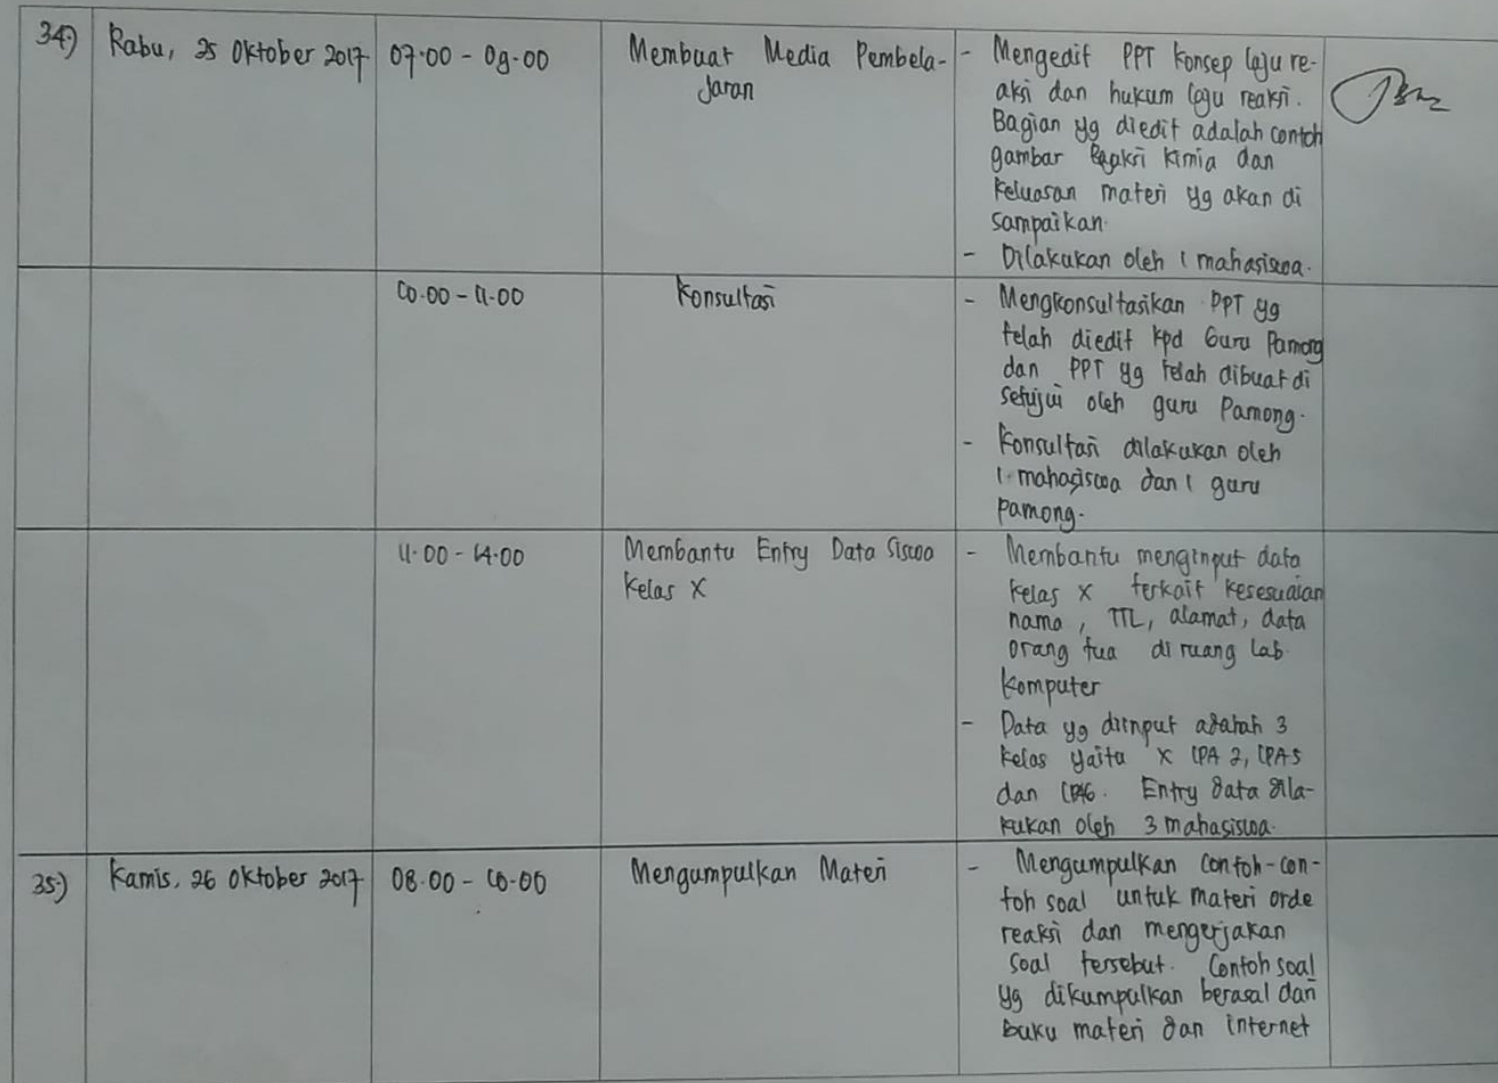 34.) Rabu, 25 Oktober 2017 07.00 - 09.00 Membuat Media Pembela-
jaran
- Mengedit PPT konsep laju re-
aksi dan hukum laju reaksi.
Bagian yg diedit adalah contoh
gambar Reaksi kimia dan
keluasan materi yg akan di
sampaikan.
- Dilakukan oleh 1 mahasiswa.
10.00 - 11.00 Konsultasi
- Mengkonsultasikan PPT yg
telah diedit kpd Guru Pamong
dan PPT yg telah dibuat di
setujui oleh guru Pamong.
- Konsultasi dilakukan oleh
1 mahasiswa dan 1 guru
pamong.
11.00 - 14.00 Membantu Entry Data Siswa
Kelas X
- Membantu menginput data
kelas X terkait kesesuaian
nama, TTL, alamat, data
orang tua di ruang Lab.
Komputer
- Data yg diinput adalah 3
kelas yaitu X IPA 2, IPA 5
dan IPA 6. Entry data dila-
kukan oleh 3 mahasiswa.
35.) Kamis, 26 Oktober 2017 08.00 - 10.00 Mengumpulkan Materi
- Mengumpulkan contoh-con-
toh soal untuk materi orde
reaksi dan mengerjakan
soal tersebut. Contoh soal
yg dikumpulkan berasal dari
buku materi dan internet